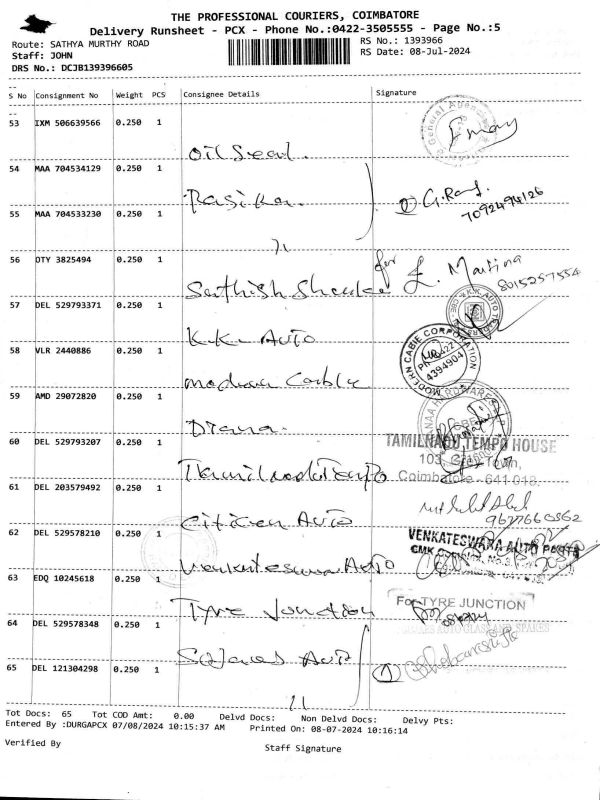 THE PROFESSIONAL COURIERS, COIMBATORE
Delivery Runsheet - PCX - Phone No.:0422-3505555 - Page No.:5
Route: SATHYA MURTHY ROAD
RS No.: 1393966
Staff: JOHN
RS Date: 08-Jul-2024
DRS No.: DCJB139396605
S No Consignment No Weight PCS Consignee Details Signature
53 IXM 506639566 0.250 1
General Agencies
Oil Seal.
54 MAA 704534129 0.250 1
Rasika.
7092494126
55 MAA 704533230 0.250 1
56 OTY 3825494 0.250 1
for
Martina
8015257554
57 DEL 529793371 0.250 1
K.K. AUTO
58 VLR 2440886 0.250 1
MODERN CABLE CORPORATION
4394904
59 AMD 29072820 0.250 1
60 DEL 529793207 0.250 1
TAMILNADU TEMPO HOUSE
Town,
Coimbatore - 641 018.
Tamilnadu Tempo
61 DEL 203579492 0.250 1
Citizen Auto
9677660862
62 DEL 529578210 0.250 1
VENKATESWARA AUTO PARTS
Venkateswara Auto
63 EDQ 10245618 0.250 1
For TYRE JUNCTION
Tyre Junction
64 DEL 529578348 0.250 1
65 DEL 121304298 0.250 1
Tot Docs: 65 Tot COD Amt: 0.00 Delvd Docs: Non Delvd Docs: Delvy Pts:
Entered By :DURGAPCX 07/08/2024 10:15:37 AM Printed On: 08-07-2024 10:16:14
Verified By
Staff Signature